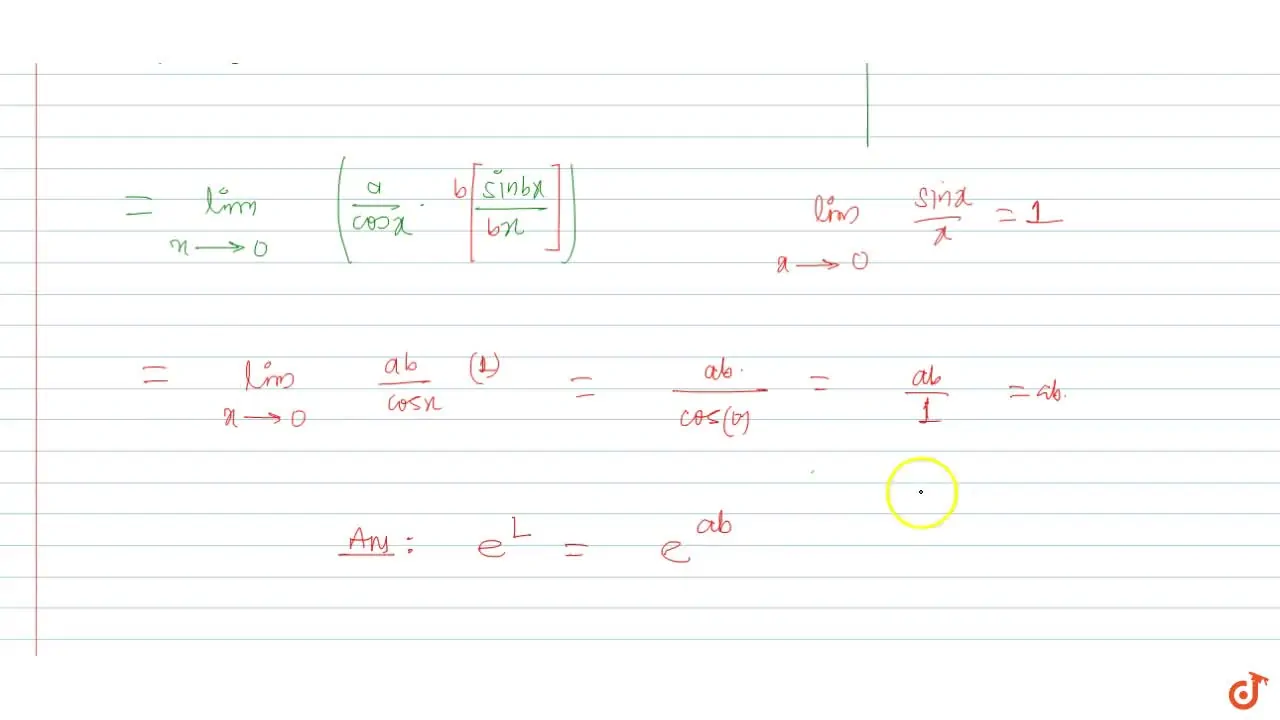 = lim x → 0 ( a/cosx · b [ sinbx/bx ] )
lim x → 0 sinx/x = 1
= lim x → 0 ab/cosx (1) = ab./cos(0) = ab/1 = ab.
Ans : e^L = e^ab